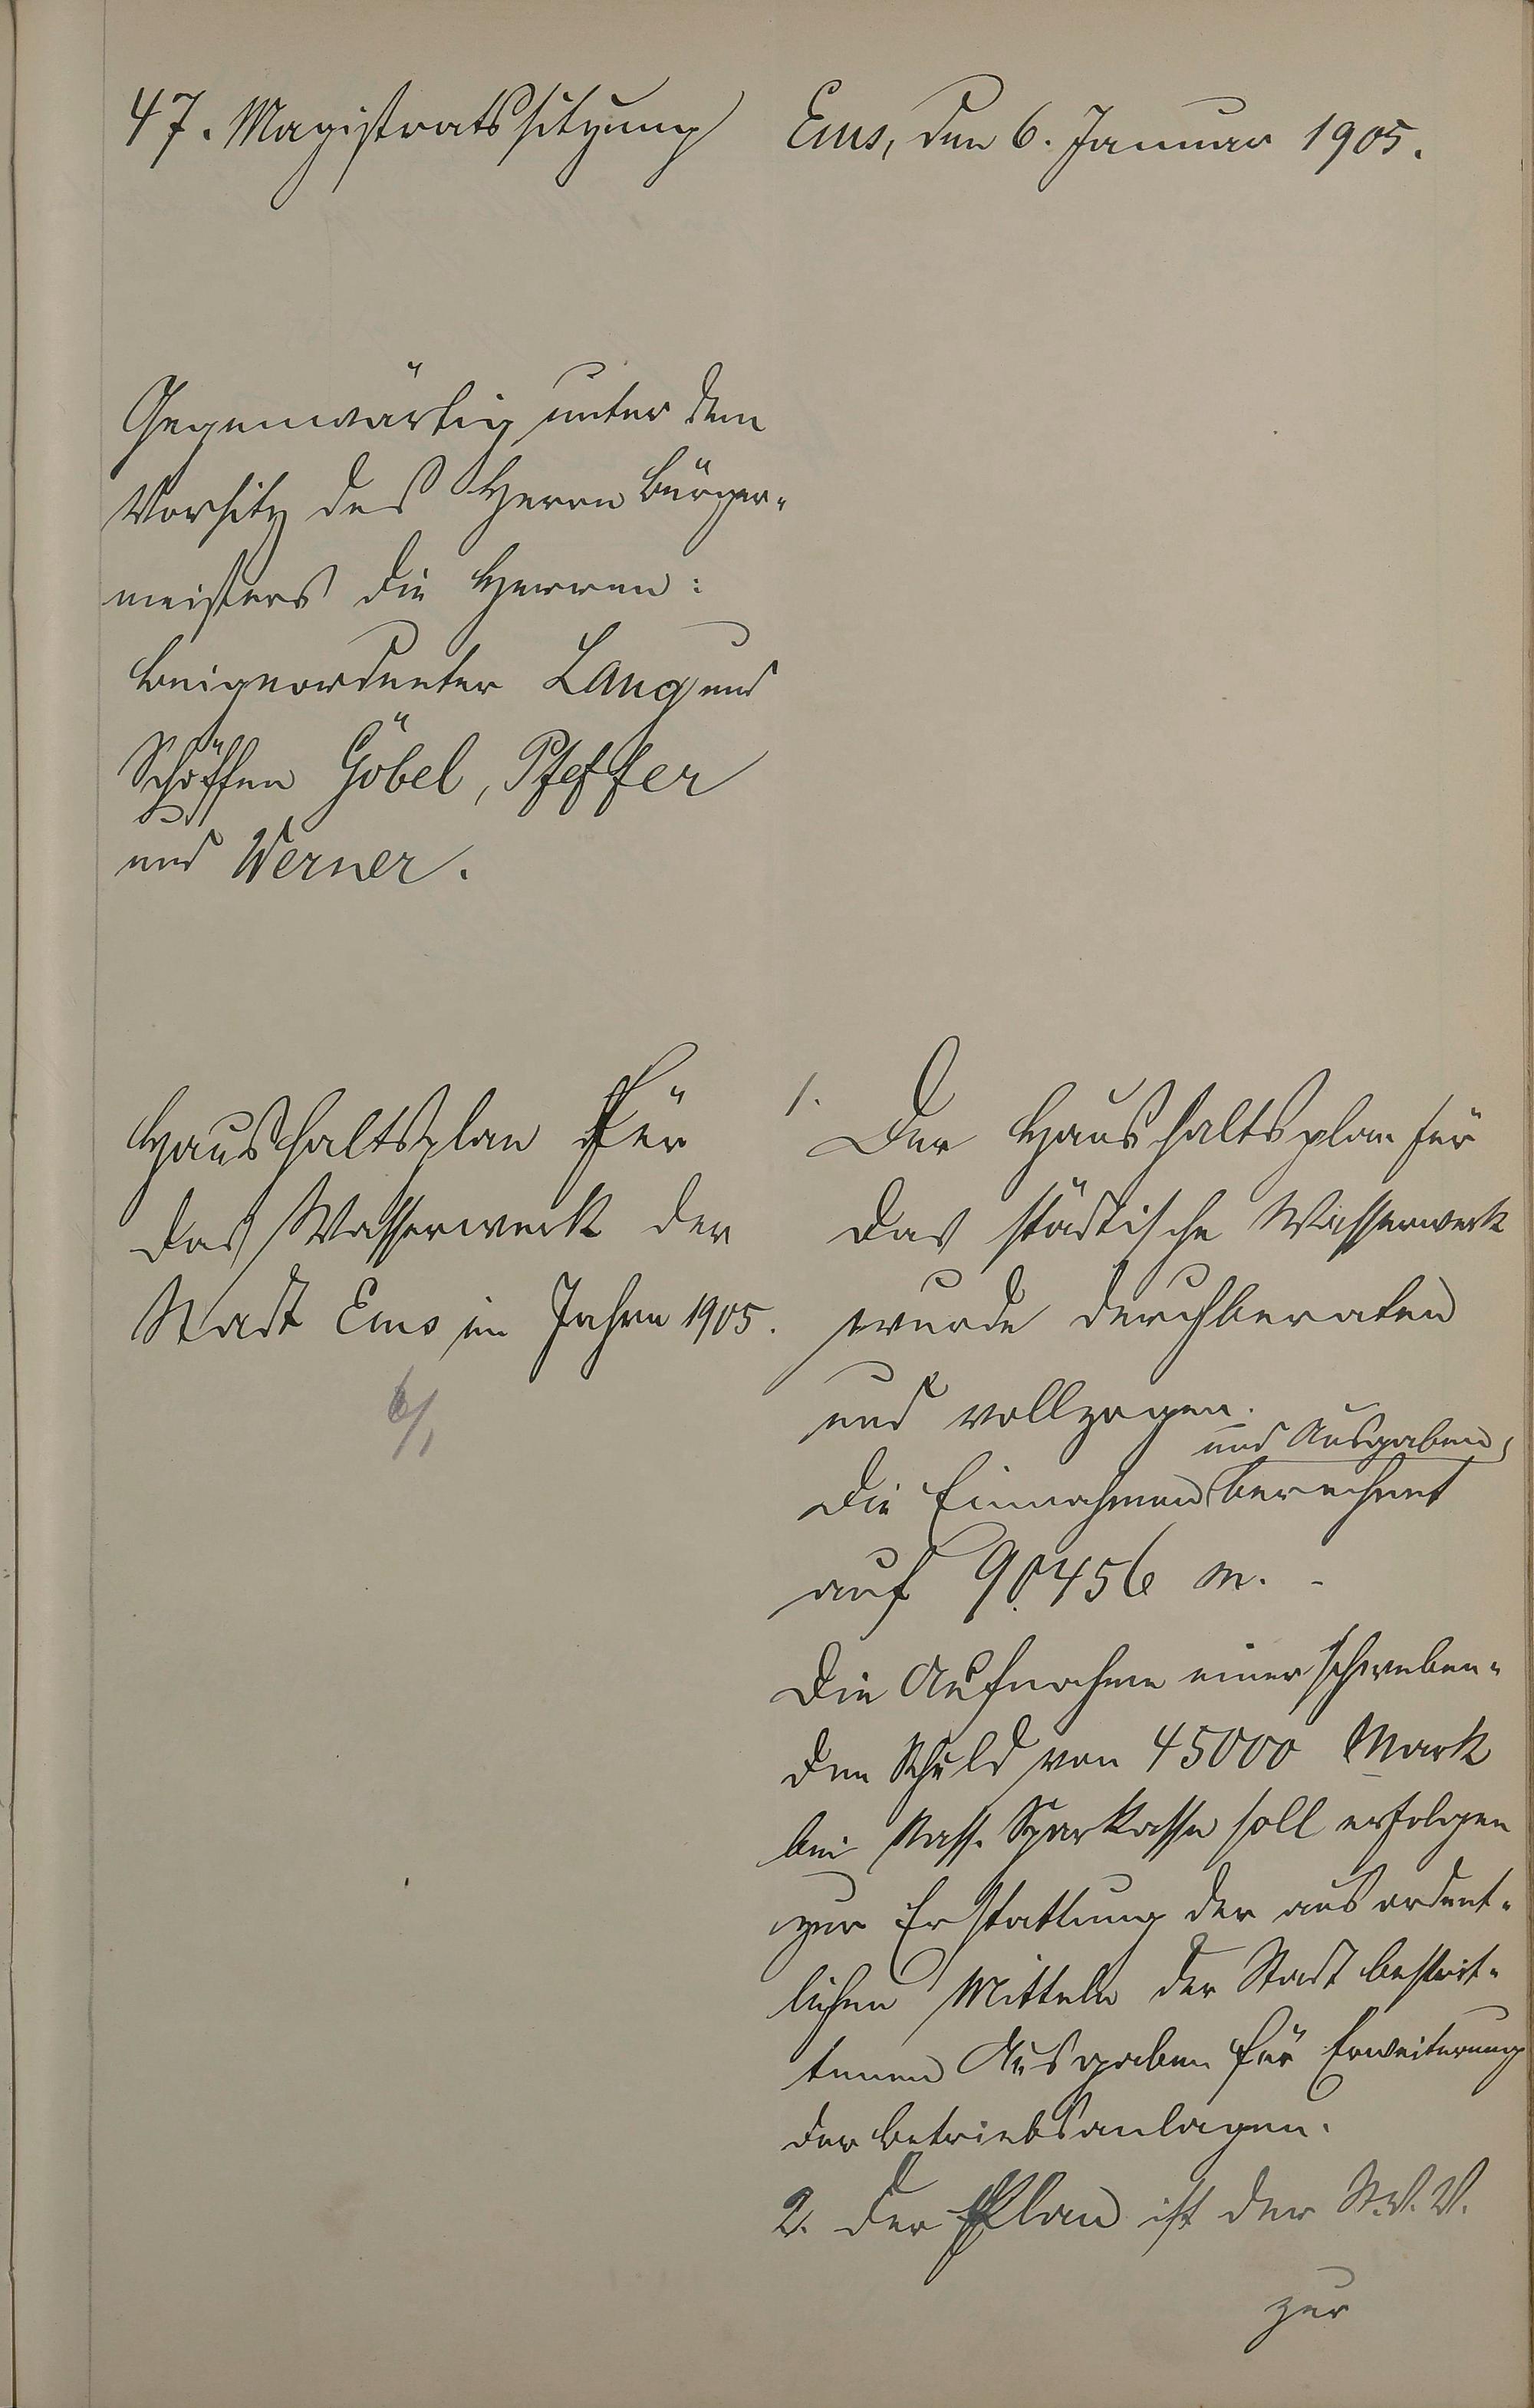 47. Magistratssitzung
Ems, den 6. Januar 1905.
Gegenwärtig unter dem
Vorsitz des Herrn Bürger-
meisters die Herren:
Beigeordneter Lang und
Schöffen Göbel, Pfeffer
und Werner.
Haushaltsplan für
das Wasserwerk der
Stadt Ems im Jahre 1905.
6/1
1.
Der Haushaltsplan für
das städtische Wasserwerk
wurde durchberaten
und vollzogen.
und Ausgaben,
Die Einnahmen berechnet
auf 90456 M. -
Die Aufnahme einer schweben-
den Schuld von 45000 Mark
bei Nass. Sparkasse soll erfolgen
zur Erstattung der aus ordent-
lichen Mitteln der Stadt bestrit-
tenen Ausgaben für Erweiterung
der Betriebsanlagen.
2. Der Plan ist der St. V. V.
zur